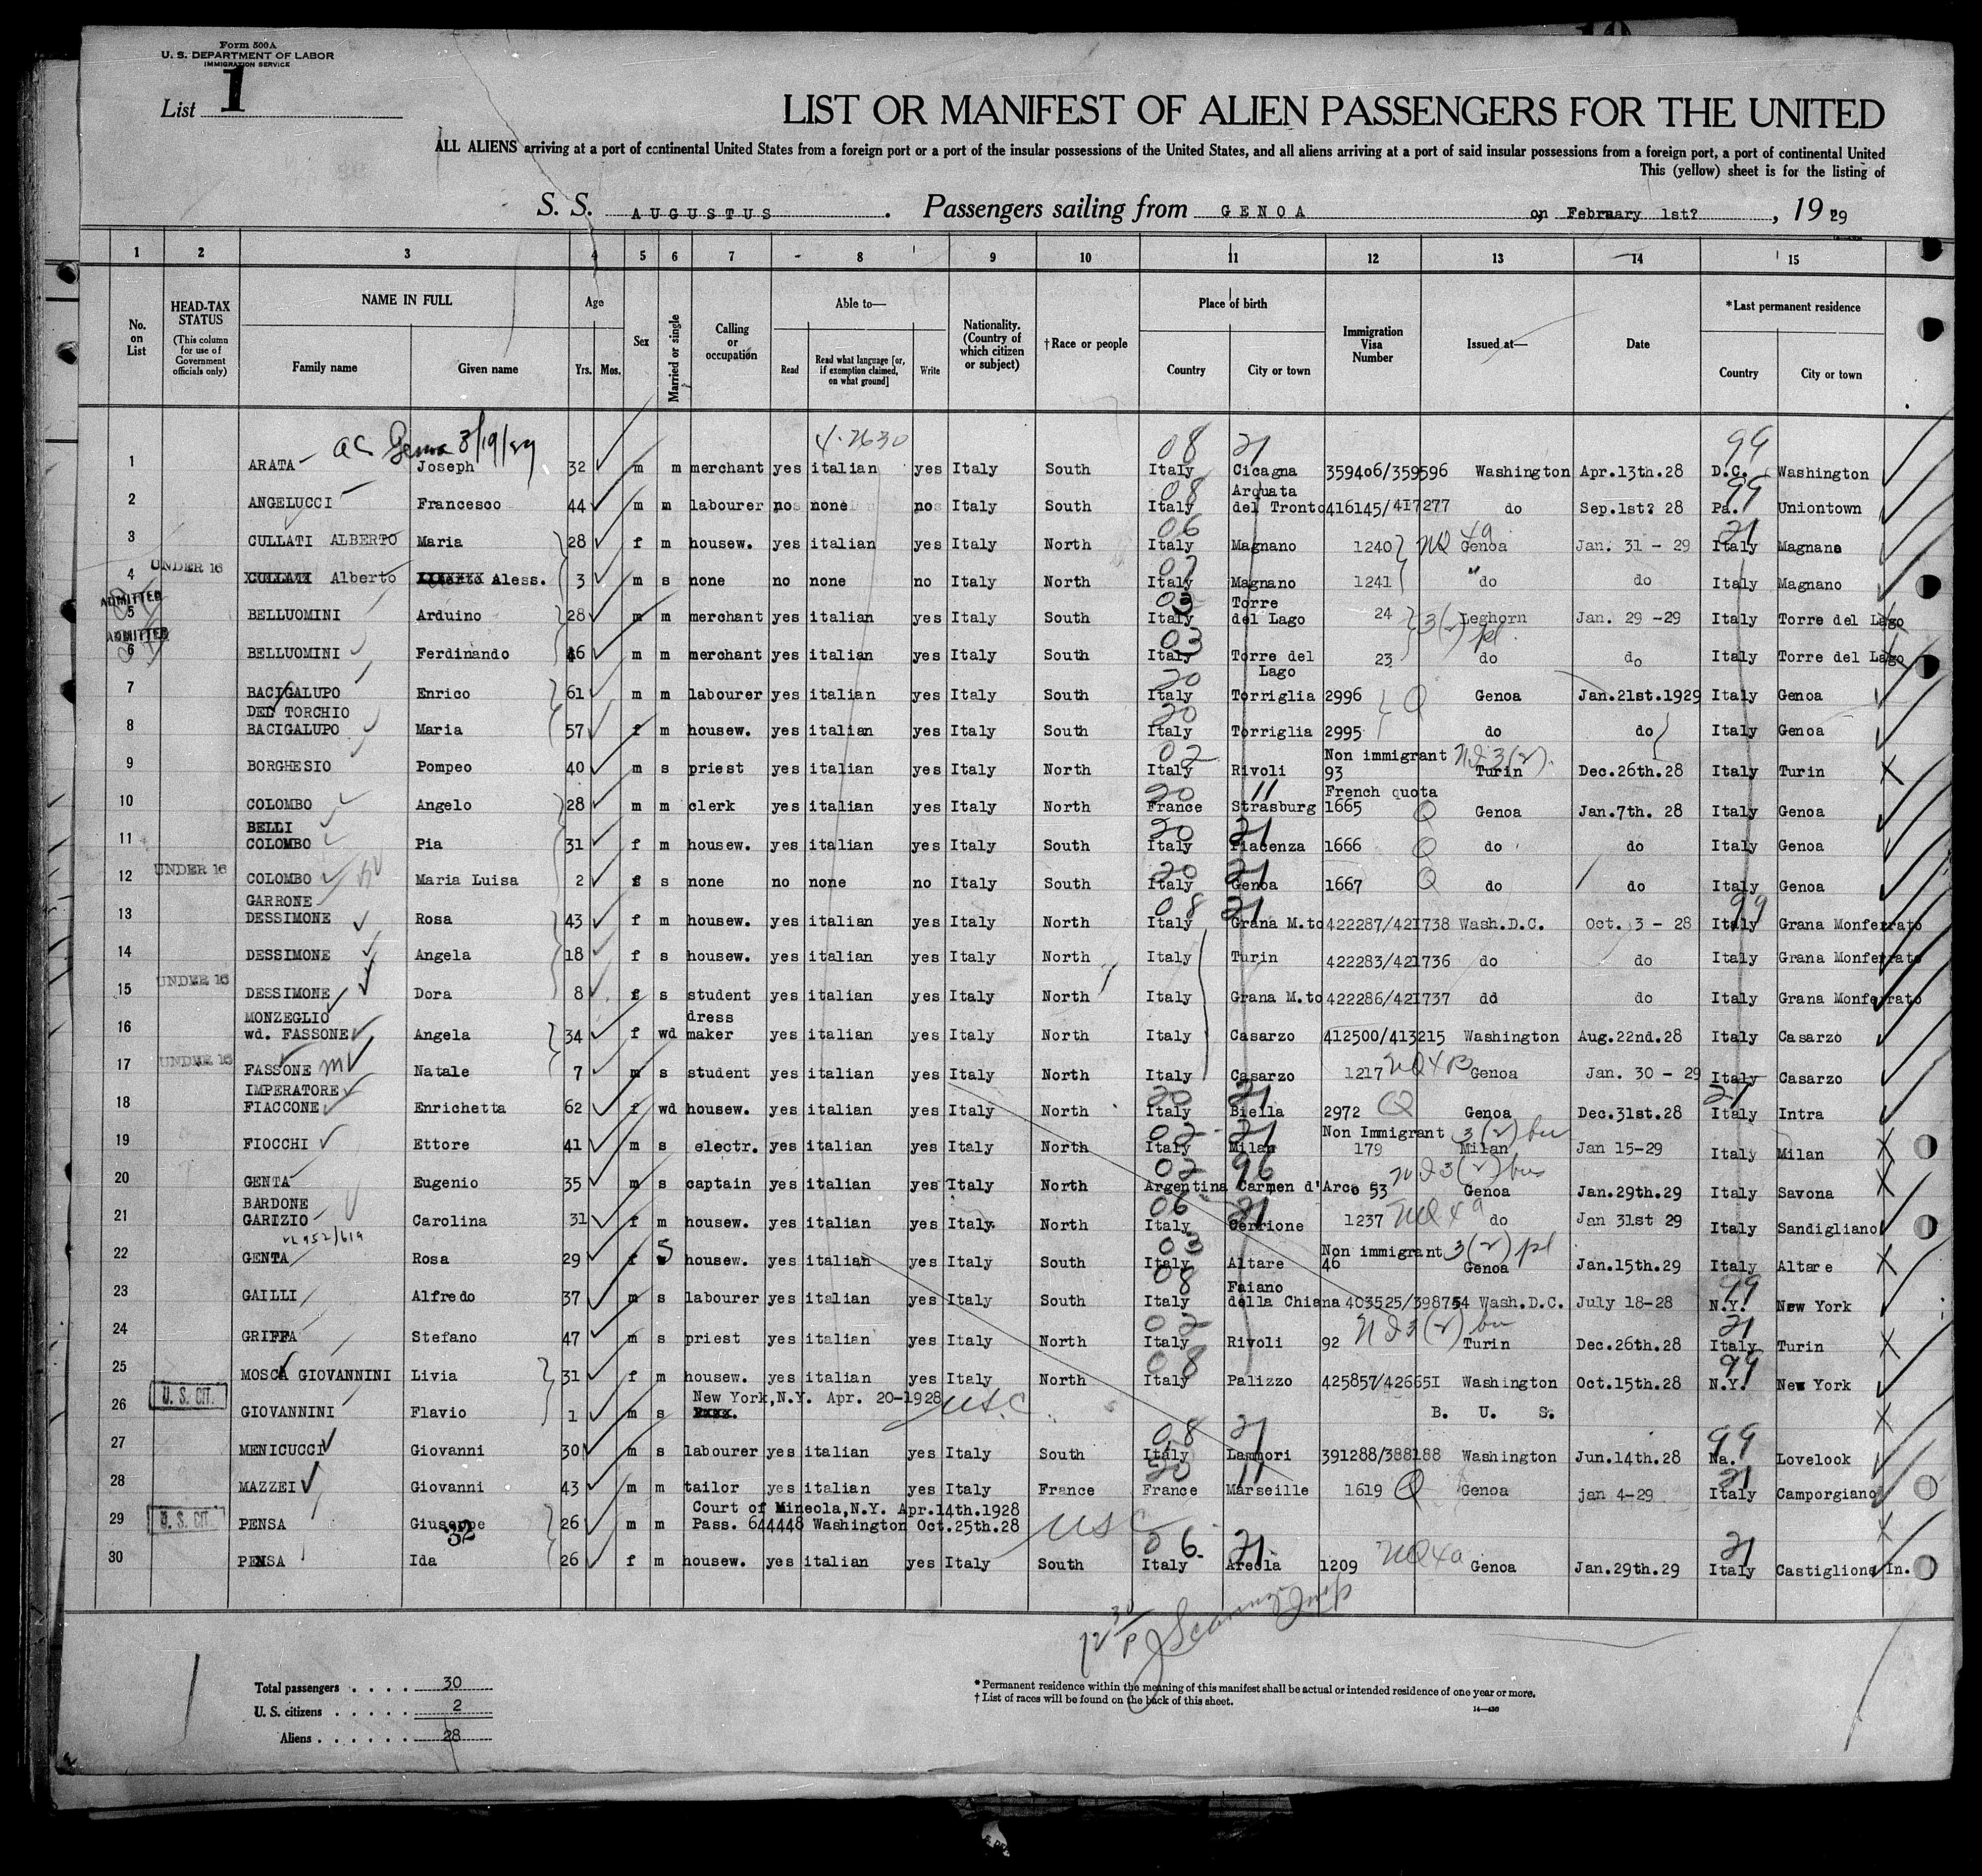 Form 500A
U. S. DEPARTMENT OF LABOR
IMMIGRATION SERVICE
List 1
LIST OR MANIFEST OF ALIEN PASSENGERS FOR THE UNITED
ALL ALIENS arriving at a port of continental United States from a foreign port or a port of the insular possessions of the United States, and all aliens arriving at a port of said insular possessions from a foreign port, a port of continental United
This (yellow) sheet is for the listing of
S. S. AUGUSTUS . Passengers sailing from GENOA on February 1st? , 1929
1 2 3 4 5 6 7 8 9 10 11 12 13 14 15
No. on List
HEAD-TAX STATUS
(This column for use of Government officials only)
NAME IN FULL
Family name Given name
Age
Yrs. Mos.
Sex
Married or single
Calling or occupation
Able to—
Read Read what language [or, if exemption claimed, on what ground] Write
Nationality. (Country of which citizen or subject)
†Race or people
Place of birth
Country City or town
Immigration Visa Number
Issued at—
Date
*Last permanent residence
Country City or town
4-2630 08 21 99
1 ARATA Joseph 32 m m merchant yes italian yes Italy South Italy Cicagna 359406/359596 Washington Apr.13th.28 D.C. Washington
08 Arquata 99
2 ANGELUCCI Francesco 44 m m labourer no none no Italy South Italy del Tronto 416145/417277 do Sep.1st? 28 Pa. Uniontown
06 21
3 CULLATI ALBERTO Maria 28 f m housew. yes italian yes Italy North Italy Magnano 1240 NQ 4a Genoa Jan. 31 - 29 Italy Magnano
UNDER 16
4 Alberto Aless. 3 m s none no none no Italy North Italy Magnano 1241 do do Italy Magnano
ADMITTED Torre
5 BELLUOMINI Arduino 28 m m merchant yes italian yes Italy South Italy del Lago 24 3(2) pl. Leghorn Jan. 29 -29 Italy Torre del Lago
ADMITTED 03
6 BELLUOMINI Ferdinando 46 m m merchant yes italian yes Italy South Italy Torre del Lago 23 do do Italy Torre del Lago
20
7 BACIGALUPO Enrico 61 m m labourer yes italian yes Italy South Italy Torriglia 2996 Q Genoa Jan.21st.1929 Italy Genoa
DEL TORCHIO 20
8 BACIGALUPO Maria 57 f m housew. yes italian yes Italy South Italy Torriglia 2995 do do Italy Genoa
02 Non immigrant 3(2)
9 BORGHESIO Pompeo 40 m s priest yes italian yes Italy North Italy Rivoli 93 Turin Dec.26th.28 Italy Turin
20 11 French quota
10 COLOMBO Angelo 28 m m clerk yes italian yes Italy North France Strasburg 1665 Q Genoa Jan.7th. 28 Italy Genoa
BELLI 20 21
11 COLOMBO Pia 31 f m housew. yes italian yes Italy South Italy Piacenza 1666 Q do do Italy Genoa
UNDER 16 20 21
12 COLOMBO Maria Luisa 2 f s none no none no Italy South Italy Genoa 1667 Q do do Italy Genoa
GARRONE 08 21 99
13 DESSIMONE Rosa 43 f m housew. yes italian yes Italy North Italy Grana M.to 422287/421738 Wash.D.C. Oct. 3 - 28 Italy Grana Monferrato
14 DESSIMONE Angela 18 f s housew. yes italian yes Italy North Italy Turin 422283/421736 do do Italy Grana Monferrato
UNDER 16
15 DESSIMONE Dora 8 f s student yes italian yes Italy North Italy Grana M.to 422286/421737 dd do Italy Grana Monferrato
MONZEGLIO dress
16 wd. FASSONE Angela 34 f wd maker yes italian yes Italy North Italy Casarzo 412500/413215 Washington Aug.22nd.28 Italy Casarzo
UNDER 16
17 FASSONE Natale 7 m s student yes italian yes Italy North Italy Casarzo 1217 NQ4B Genoa Jan. 30 - 29 Italy Casarzo
IMPERATORE 20 21 21
18 FIACCONE Enrichetta 62 f wd housew. yes italian yes Italy North Italy Biella 2972 Q Genoa Dec.31st.28 Italy Intra
02 21 Non Immigrant 3(2) bu
19 FIOCCHI Ettore 41 m s electr. yes italian yes Italy North Italy Milan 179 Milan Jan 15-29 Italy Milan
02 96 3(2) bus
20 GENTA Eugenio 35 m s captain yes italian yes Italy North Argentina Carmen d'Arco 53 Genoa Jan.29th.29 Italy Savona
BARDONE 06 21
21 GARIZIO Carolina 31 f m housew. yes italian yes Italy North Italy Cerrione 1237 NQ 4a do Jan 31st 29 Italy Sandigliano
03 Non immigrant 3(2) pl
22 GENTA Rosa 29 f S housew. yes italian yes Italy South Italy Altare 46 Genoa Jan.15th.29 Italy Altare
08 Faiano 99
23 GAILLI Alfredo 37 m s labourer yes italian yes Italy South Italy della Chiana 403525/398754 Wash.D.C. July 18-28 N.Y. New York
02 3(2) bu 21
24 GRIFFA Stefano 47 m s priest yes italian yes Italy North Italy Rivoli 92 Turin Dec.26th.28 Italy Turin
08 99
25 MOSCA GIOVANNINI Livia 31 f m housew. yes italian yes Italy North Italy Palizzo 425857/426651 Washington Oct.15th.28 N.Y. New York
U. S. CIT. New York,N.Y. Apr. 20-1928 USC
26 GIOVANNINI Flavio 1 m s B. U. S.
08 21 99
27 MENICUCCI Giovanni 30 m s labourer yes italian yes Italy South Italy Lammori 391288/388188 Washington Jun.14th.28 Na. Lovelook
20 11 21
28 MAZZEI Giovanni 43 m m tailor yes italian yes Italy France France Marseille 1619 Q Genoa jan 4-29 Italy Camporgiano
U. S. CIT. Court of Mineola,N.Y. Apr.14th.1928
29 PENSA Giuseppe 26 m m Pass. 644448 Washington Oct.25th.28 USC
32 06 21 21
30 PENSA Ida 26 f m housew. yes italian yes Italy South Italy Areola 1209 NQ4a Genoa Jan.29th.29 Italy Castiglione In.
12 30 P
Total passengers . . . . 30
U. S. citizens . . . . . 2
Aliens . . . . . . 28
* Permanent residence within the meaning of this manifest shall be actual or intended residence of one year or more.
† List of races will be found on the back of this sheet.